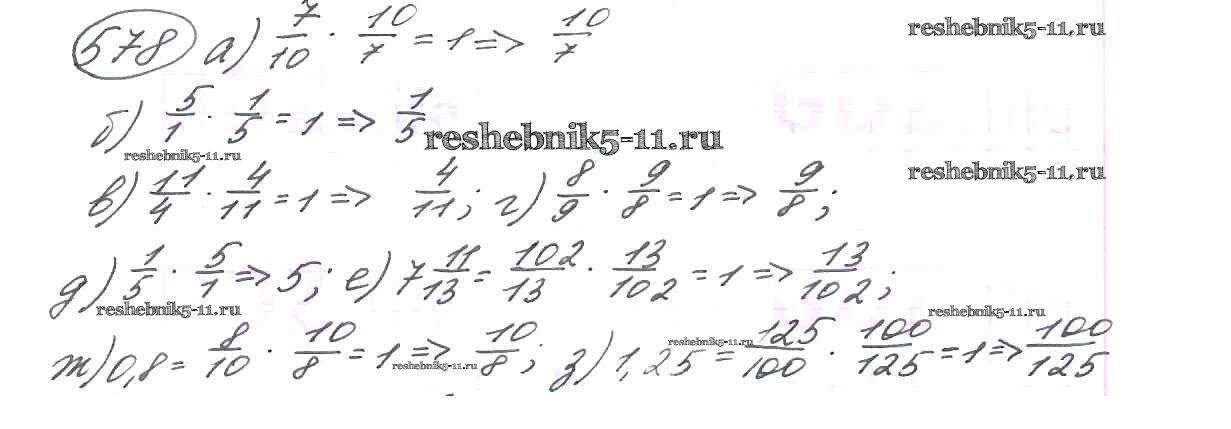 578 а) 7/10 · 10/7 = 1 => 10/7 reshebnik5-11.ru
б) 5/1 · 1/5 = 1 => 1/5 reshebnik5-11.ru
reshebnik5-11.ru
в) 11/4 · 4/11 = 1 => 4/11; г) 8/9 · 9/8 = 1 => 9/8; reshebnik5-11.ru
д) 1/5 · 5/1 => 5; е) 7 11/13 = 102/13 · 13/102 = 1 => 13/102;
reshebnik5-11.ru reshebnik5-11.ru
ж) 0,8 = 8/10 · 10/8 = 1 => 10/8; з) 1,25 = 125/100 · 100/125 = 1 => 100/125
reshebnik5-11.ru reshebnik5-11.ru